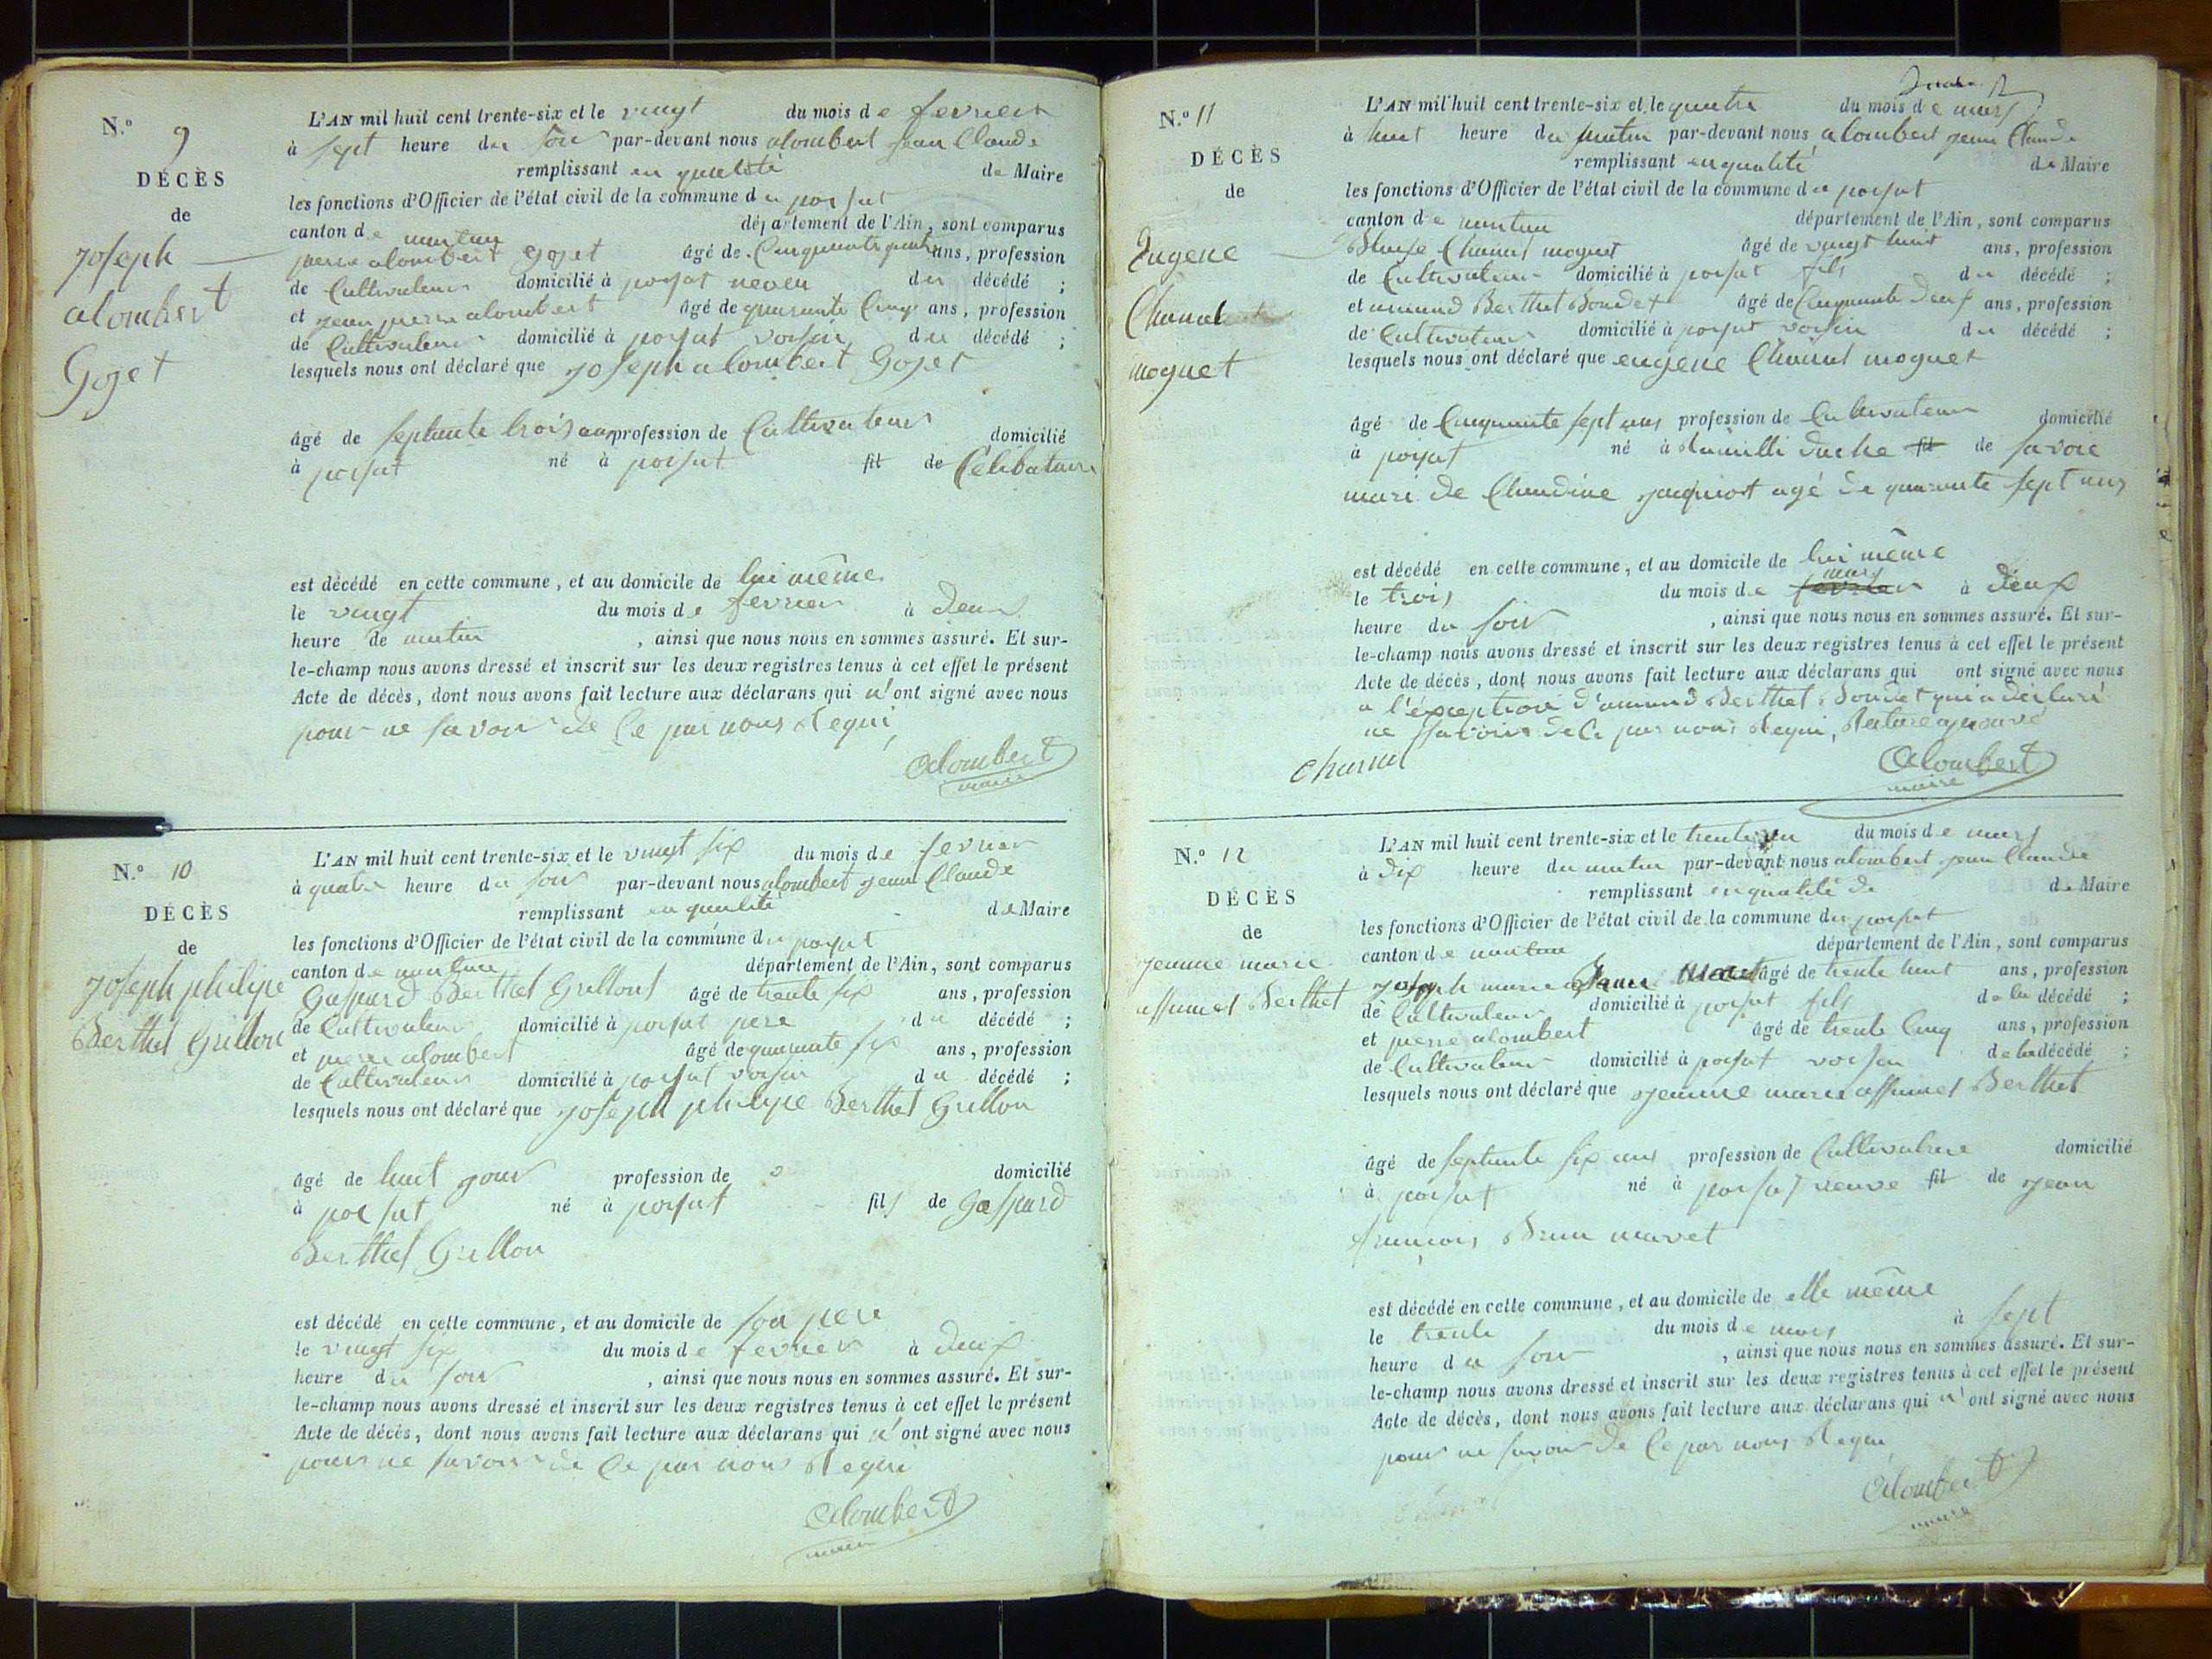 N.o 9
DÉCÈS
de
joseph
alombert
Gojet
L'AN mil huit cent trente-six et le vingt du mois de fevrier
à sept heure du soir par-devant nous alombert jean Claude
remplissant en qualité de Maire
les fonctions d'Officier de l'état civil de la commune du poisat
canton de nantua département de l'Ain, sont comparus
pierre alombert gojet âgé de Cinquante quatre ans, profession
de Cultivateur domicilié à poisat neveu du décédé ;
et jean pierre alombert âgé de quarante Cinq ans, profession
de Cultivateur domicilié à poisat voisin du décédé ;
lesquels nous ont déclaré que joseph alombert Gojet
âgé de septante trois ans profession de Cultivateur domicilié
à poisat né à poisat fil de Célibataire
est décédé en cette commune, et au domicile de lui même
le vingt du mois de fevrier à deux
heure de matin , ainsi que nous nous en sommes assuré. Et sur-
le-champ nous avons dressé et inscrit sur les deux registres tenus à cet effet le présent
Acte de décès, dont nous avons fait lecture aux déclarans qui n'ont signé avec nous
pour ne savoir de Ce par nous Requi
alombert
maire
N.o 10
DÉCÈS
de
joseph philipe
Berthet Grillon
L'AN mil huit cent trente-six et le vingt six du mois de fevrier
à quatre heure du soir par-devant nous alombert jean Claude
remplissant en qualité de Maire
les fonctions d'Officier de l'état civil de la commune du poisat
canton de nantua département de l'Ain, sont comparus
Gaspard Berthet Grillon âgé de trente six ans, profession
de Cultivateur domicilié à poisat pere du décédé ;
et pierre alombert âgé de quarante six ans, profession
de Cultivateur domicilié à poisat voisin du décédé ;
lesquels nous ont déclaré que joseph philipe Berthet Grillon
âgé de huit jour profession de domicilié
à poisat né à poisat fils de Gaspard
Berthet Grillon
est décédé en cette commune, et au domicile de son pere
le vingt six du mois de fevrier à deux
heure du soir , ainsi que nous nous en sommes assuré. Et sur-
le-champ nous avons dressé et inscrit sur les deux registres tenus à cet effet le présent
Acte de décès, dont nous avons fait lecture aux déclarans qui n'ont signé avec nous
pour ne savoir de Ce par nous Requi
alombert
maire
N.o 11
DÉCÈS
de
Eugene
Charnal
moquet
L'AN mil huit cent trente-six et le quatre du mois de mars
à huit heure du matin par-devant nous alombert jean Claude
remplissant en qualité de Maire
les fonctions d'Officier de l'état civil de la commune du poisat
canton de nantua département de l'Ain, sont comparus
Blaise Charnal moquet âgé de vingt huit ans, profession
de Cultivateur domicilié à poisat fils du décédé ;
et amand Berthet Bondet âgé de Cinquante deux ans, profession
de Cultivateur domicilié à poisat voisin du décédé ;
lesquels nous ont déclaré que eugene Charnal moquet
âgé de Cinquante sept ans profession de Cultivateur domicilié
à poisat né à Rumilli duché fil de savoie
mari de Claudine jacquiot agé de quarante sept ans
est décédé en cette commune, et au domicile de lui même
mars
le trois du mois de fevrier à deux
heure du soir , ainsi que nous nous en sommes assuré. Et sur-
le-champ nous avons dressé et inscrit sur les deux registres tenus à cet effet le présent
Acte de décès, dont nous avons fait lecture aux déclarans qui ont signé avec nous
a l'éxception d'amand Berthet Bondet qui a déclaré
ne savoir de Ce par nous Requi, Rature aprouvé
Charnal
alombert
maire
N.o 12
DÉCÈS
de
jeanne marie
assumel Berthet
L'AN mil huit cent trente-six et le trente un du mois de mars
à dix heure du matin par-devant nous alombert jean Claude
remplissant en qualité de de Maire
les fonctions d'Officier de l'état civil de la commune du poisat
canton de nantua département de l'Ain, sont comparus
joseph marie Brun Maret âgé de trente huit ans, profession
de Cultivateur domicilié à poisat fils de la décédé ;
et pierre alombert âgé de trente Cinq ans, profession
de Cultivateur domicilié à poisat voisin de la décédé ;
lesquels nous ont déclaré que jeanne marie assumel Berthet
âgé de septante six ans profession de Cultivatrice domicilié
à poisat né à poisat veuve fil de jean
francois Brun maret
est décédé en cette commune, et au domicile de elle même
le trente du mois de mars à sept
heure du soir , ainsi que nous nous en sommes assuré. Et sur-
le-champ nous avons dressé et inscrit sur les deux registres tenus à cet effet le présent
Acte de décès, dont nous avons fait lecture aux déclarans qui n'ont signé avec nous
pour ne savoir de Ce par nous Requi
alombert
maire